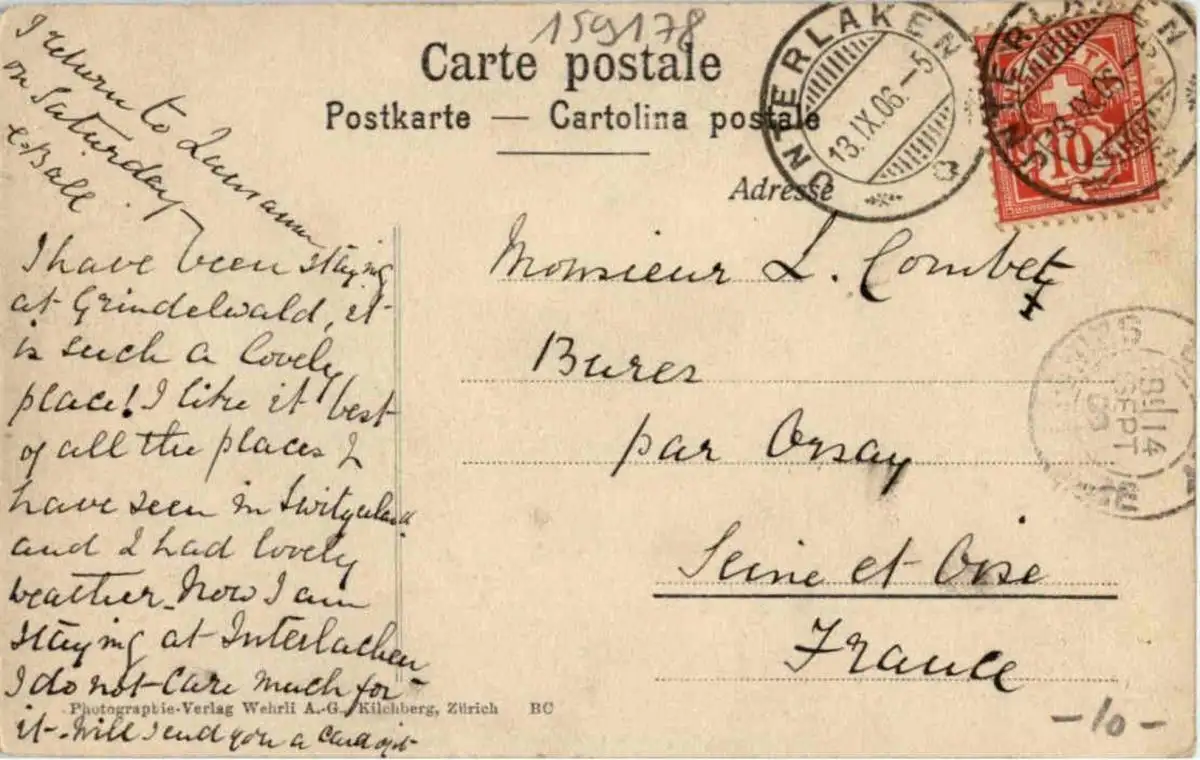 159178
Carte postale
Postkarte — Cartolina postale
Adresse
INTERLAKEN
13.IX.06.–5
INTERLAKEN
13.IX.06.
10
I return to Lausanne
on Saturday
I have been staying
at Grindelwald, it
is such a lovely
place! I like it best
of all the places I
have seen in Switzerland
and I had lovely
weather. Now I am
staying at Interlachen
I do not care much for
it. Will send you a card of it
Monsieur L. Combet
Bures
par Orsay
Seine et Oise
France
14
SEPT
Photographie-Verlag Wehrli A.-G., Kilchberg, Zürich BC
-10-